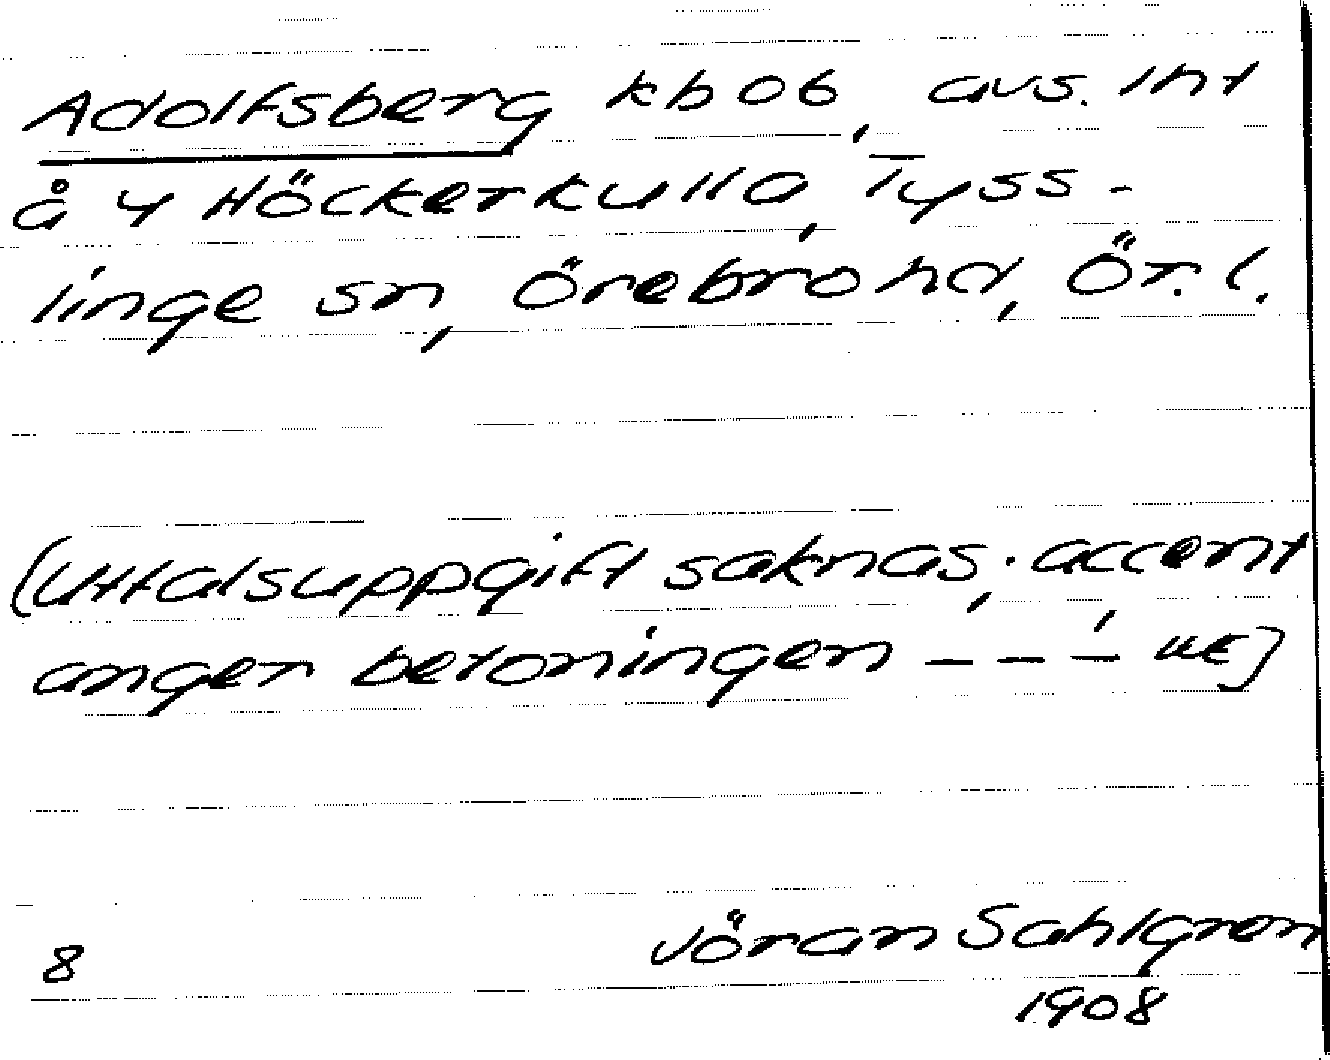 Adolfsberg kbob, avs. lht
å 4 Höckerkulla, Tyss-
linge sn, Örebro hd, Ör. l.
(Uttalsuppgift saknas; accent
anger betoningen _ _ _́ UE]
8 Jöran Sahlgren
1908